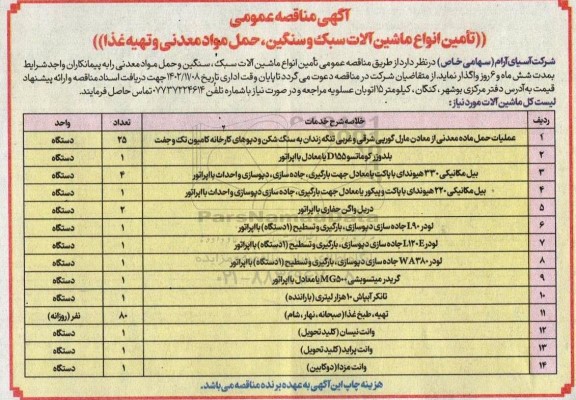 آگهی مناقصه عمومی
((تأمین انواع ماشین آلات سبک و سنگین، حمل مواد معدنی و تهیه غذا))
شرکت آسیای آرام (سهامی خاص) در نظر دارد از طریق مناقصه عمومی تأمین انواع ماشین آلات سبک، سنگین و حمل مواد معدنی را به پیمانکاران واجد شرایط
بمدت شش ماه و ۶ روز واگذار نماید. از متقاضیان شرکت در مناقصه دعوت می گردد تا پایان وقت اداری تاریخ ۱۴۰۲/۱۱/۰۸ جهت دریافت اسناد مناقصه و ارائه پیشنهاد
قیمت به آدرس دفتر مرکزی بوشهر، کنگان، کیلومتر ۱۵ اتوبان عسلویه مراجعه و در صورت نیاز با شماره تلفن ۰۷۷۳۷۲۲۴۶۱۴ تماس حاصل فرمایند.
لیست کل ماشین آلات مورد نیاز:
ردیف خلاصه شرح خدمات تعداد واحد
۱ عملیات حمل ماده معدنی از معادن مارل گورپی شرقی و غربی تنگه زندان به سنگ شکن و دپوهای کارخانه کامیون تک و جفت ۲۵ دستگاه
۲ بلدوزر کوماتسو D155 یا معادل با اپراتور ۱ دستگاه
۳ بیل مکانیکی ۳۳۰ هیوندای با پاکت یا معادل جهت بارگیری، جاده سازی، دپوسازی و احداث با اپراتور ۴ دستگاه
۴ بیل مکانیکی ۲۲۰ هیوندای با پاکت و پیکور یا معادل جهت بارگیری، جاده سازی دپوسازی و احداث با اپراتور ۱ دستگاه
۵ دریل واگن حفاری با اپراتور ۲ دستگاه
۶ لودر L90 جاده سازی دپوسازی، بارگیری و تسطیح (۱ دستگاه) با اپراتور ۱ دستگاه
۷ لودر L120E جاده سازی دپوسازی، بارگیری و تسطیح (۱ دستگاه) با اپراتور ۱ دستگاه
۸ لودر WA380 جاده سازی دپوسازی، بارگیری و تسطیح (۱ دستگاه) با اپراتور ۱ دستگاه
۹ گریدر میتسوبیشی MG500 یا معادل با اپراتور ۱ دستگاه
۱۰ تانکر آبپاش ۱۰ هزار لیتری (با راننده) ۱ دستگاه
۱۱ تهیه، طبخ غذا (صبحانه، نهار، شام) ۸۰ نفر (روزانه)
۱۲ وانت نیسان (کلید تحویل) ۱ دستگاه
۱۳ وانت پراید (کلید تحویل) ۱ دستگاه
۱۴ وانت مزدا (دو کابین) ۱ دستگاه
هزینه چاپ این آگهی به عهده برنده مناقصه می باشد.